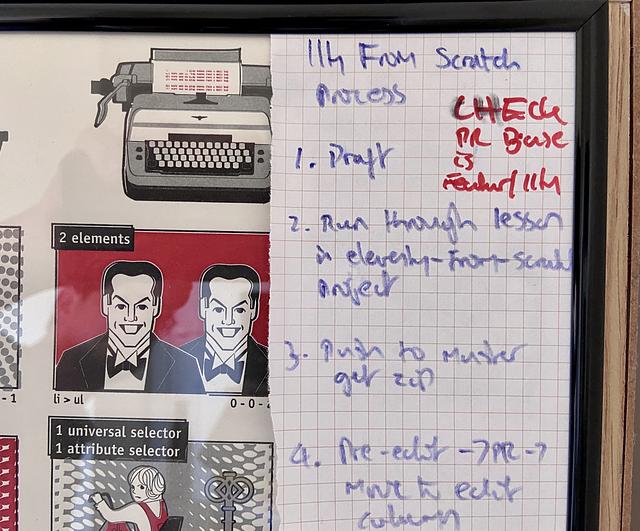 11ty From Scratch
process
CHECK
PR Base
is
Feature/11ty
1. Draft
2. Run through lesson
in eleventy-from-scratch
project
3. Push to master
get zip
4. Pre-edit → PR →
Move to edit
column
2 elements
li > ul
0-0-
-1
1 universal selector
1 attribute selector